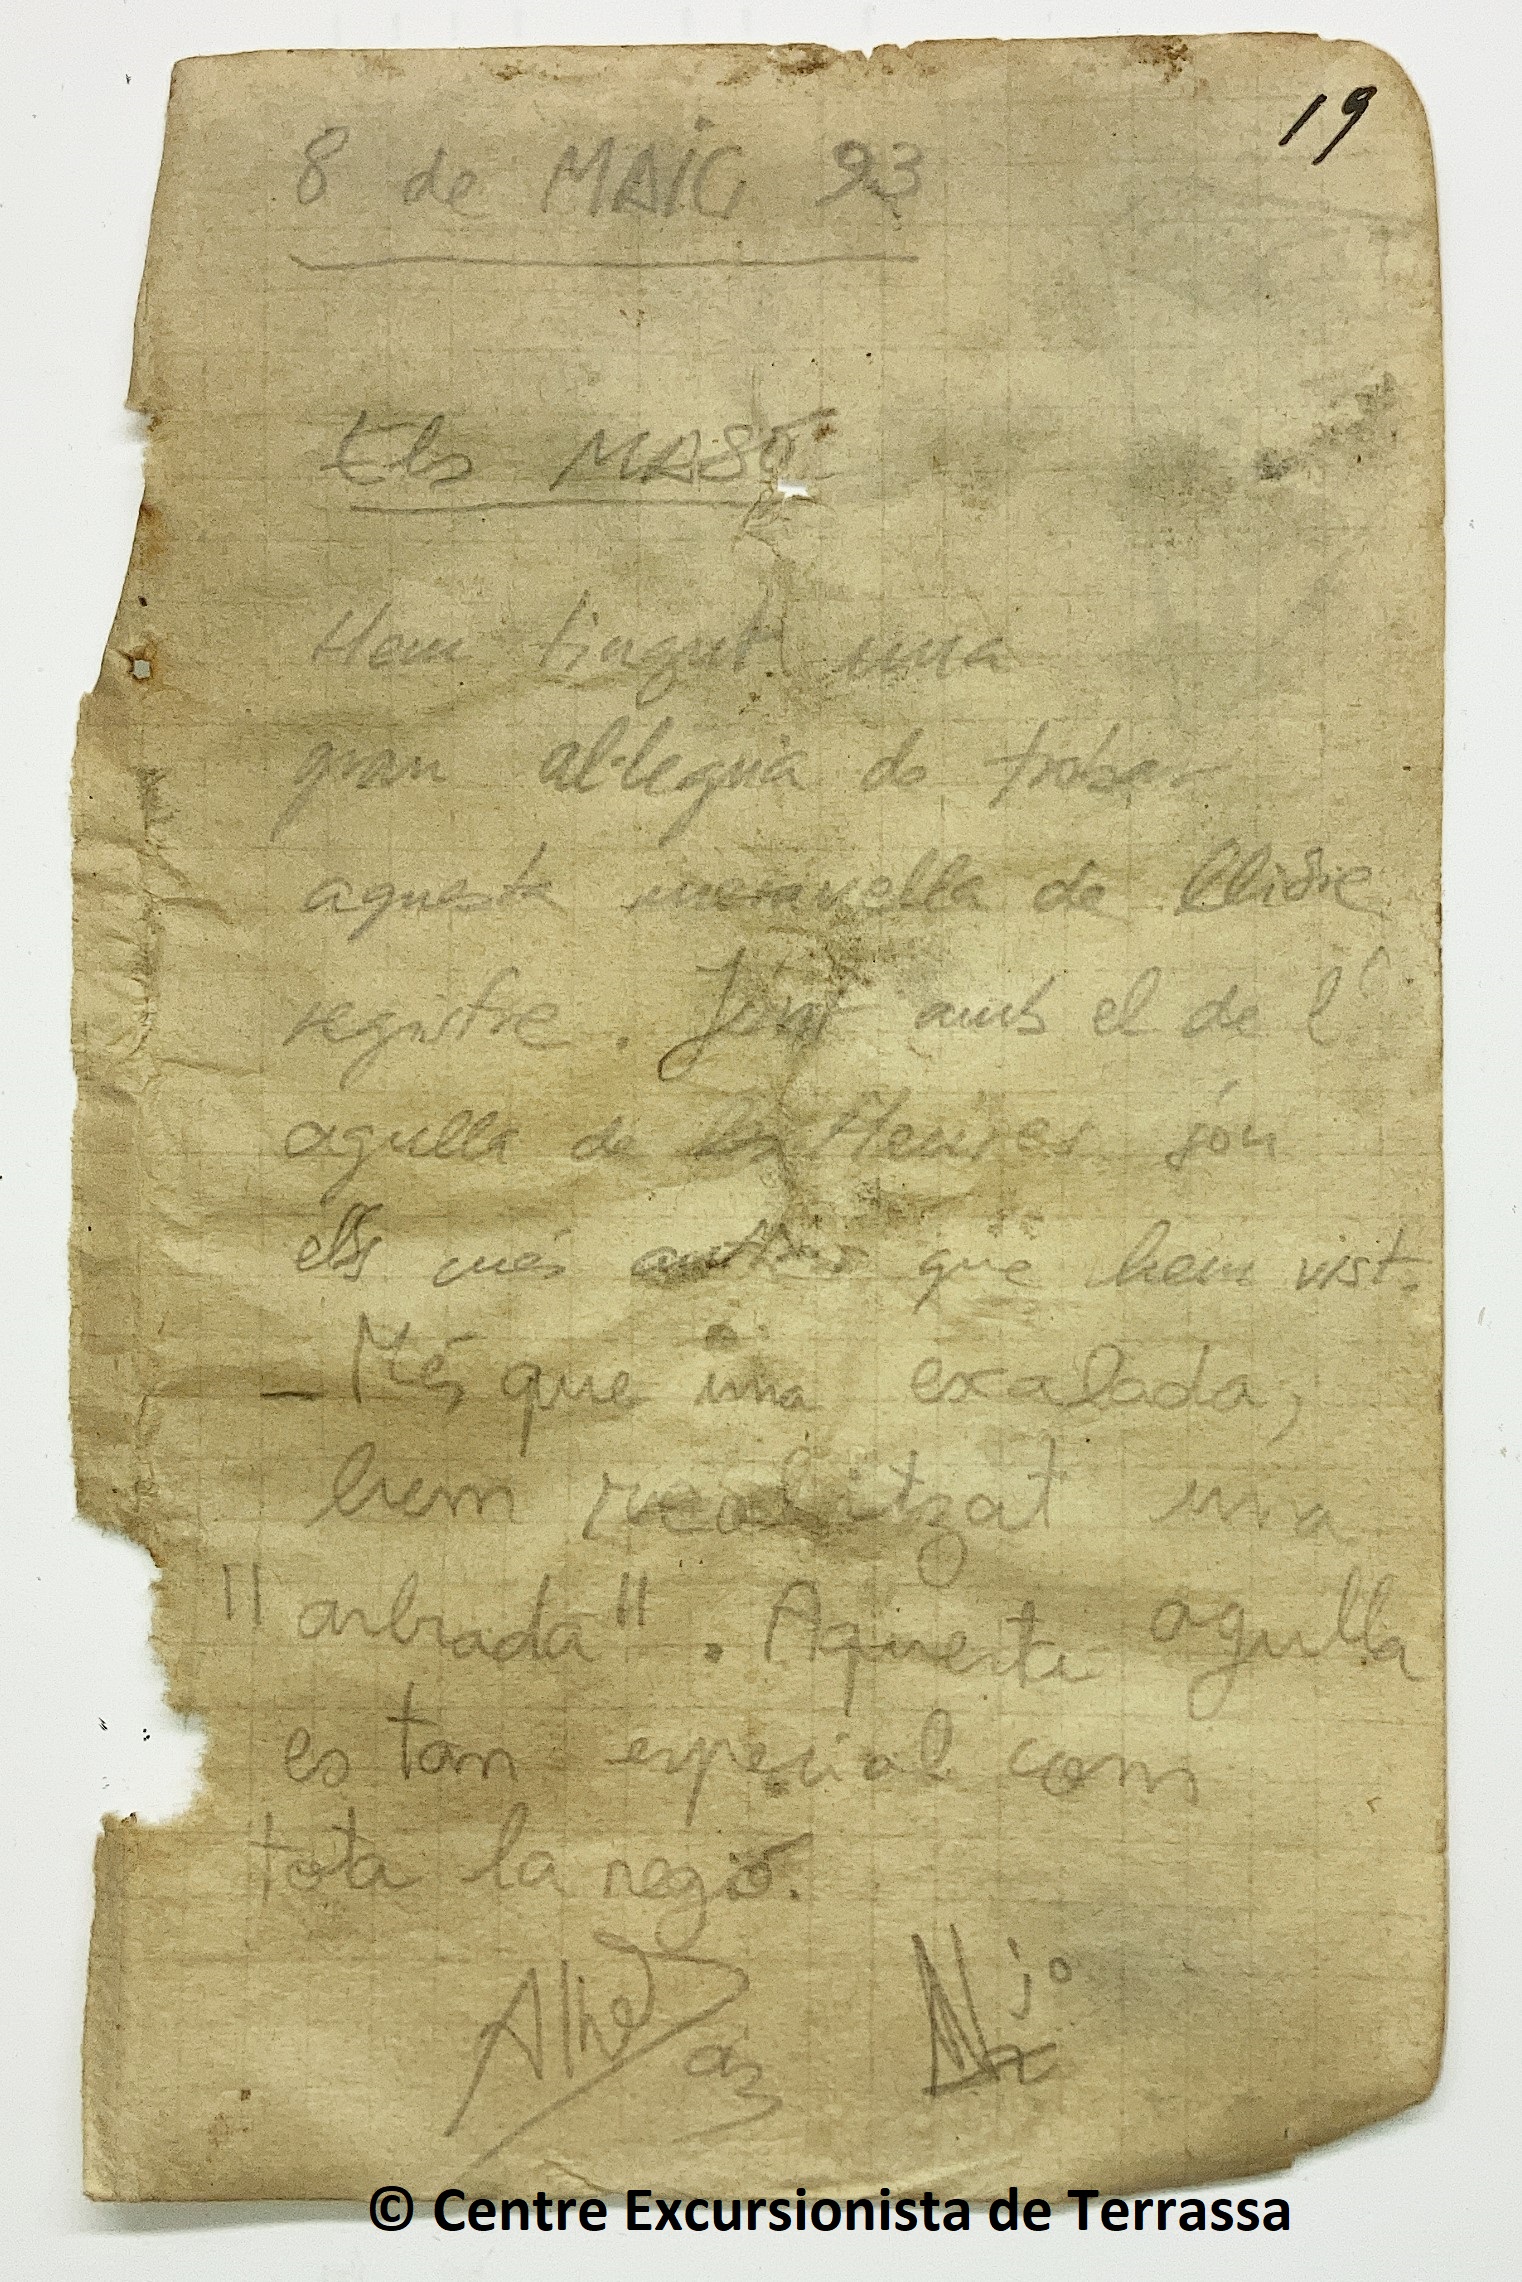 19
8 de MAIG 93
Els MASÓ
Hem tingut una
gran al·legria de trobar
aquesta meravella de llibre
registre. Junt amb el de l'
agulla de les Heures són
els més antics que hem vist.
- Més que una escalada,
hem realitzat una
"arbrada". Aquesta agulla
es tan especial com
tota la regió.
© Centre Excursionista de Terrassa